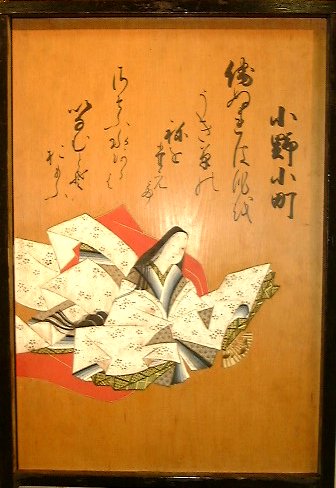 小野小町
侘ぬれは身を
うき草の
ねをたえて
さそふ水あらは
いなむとそ
おもふ